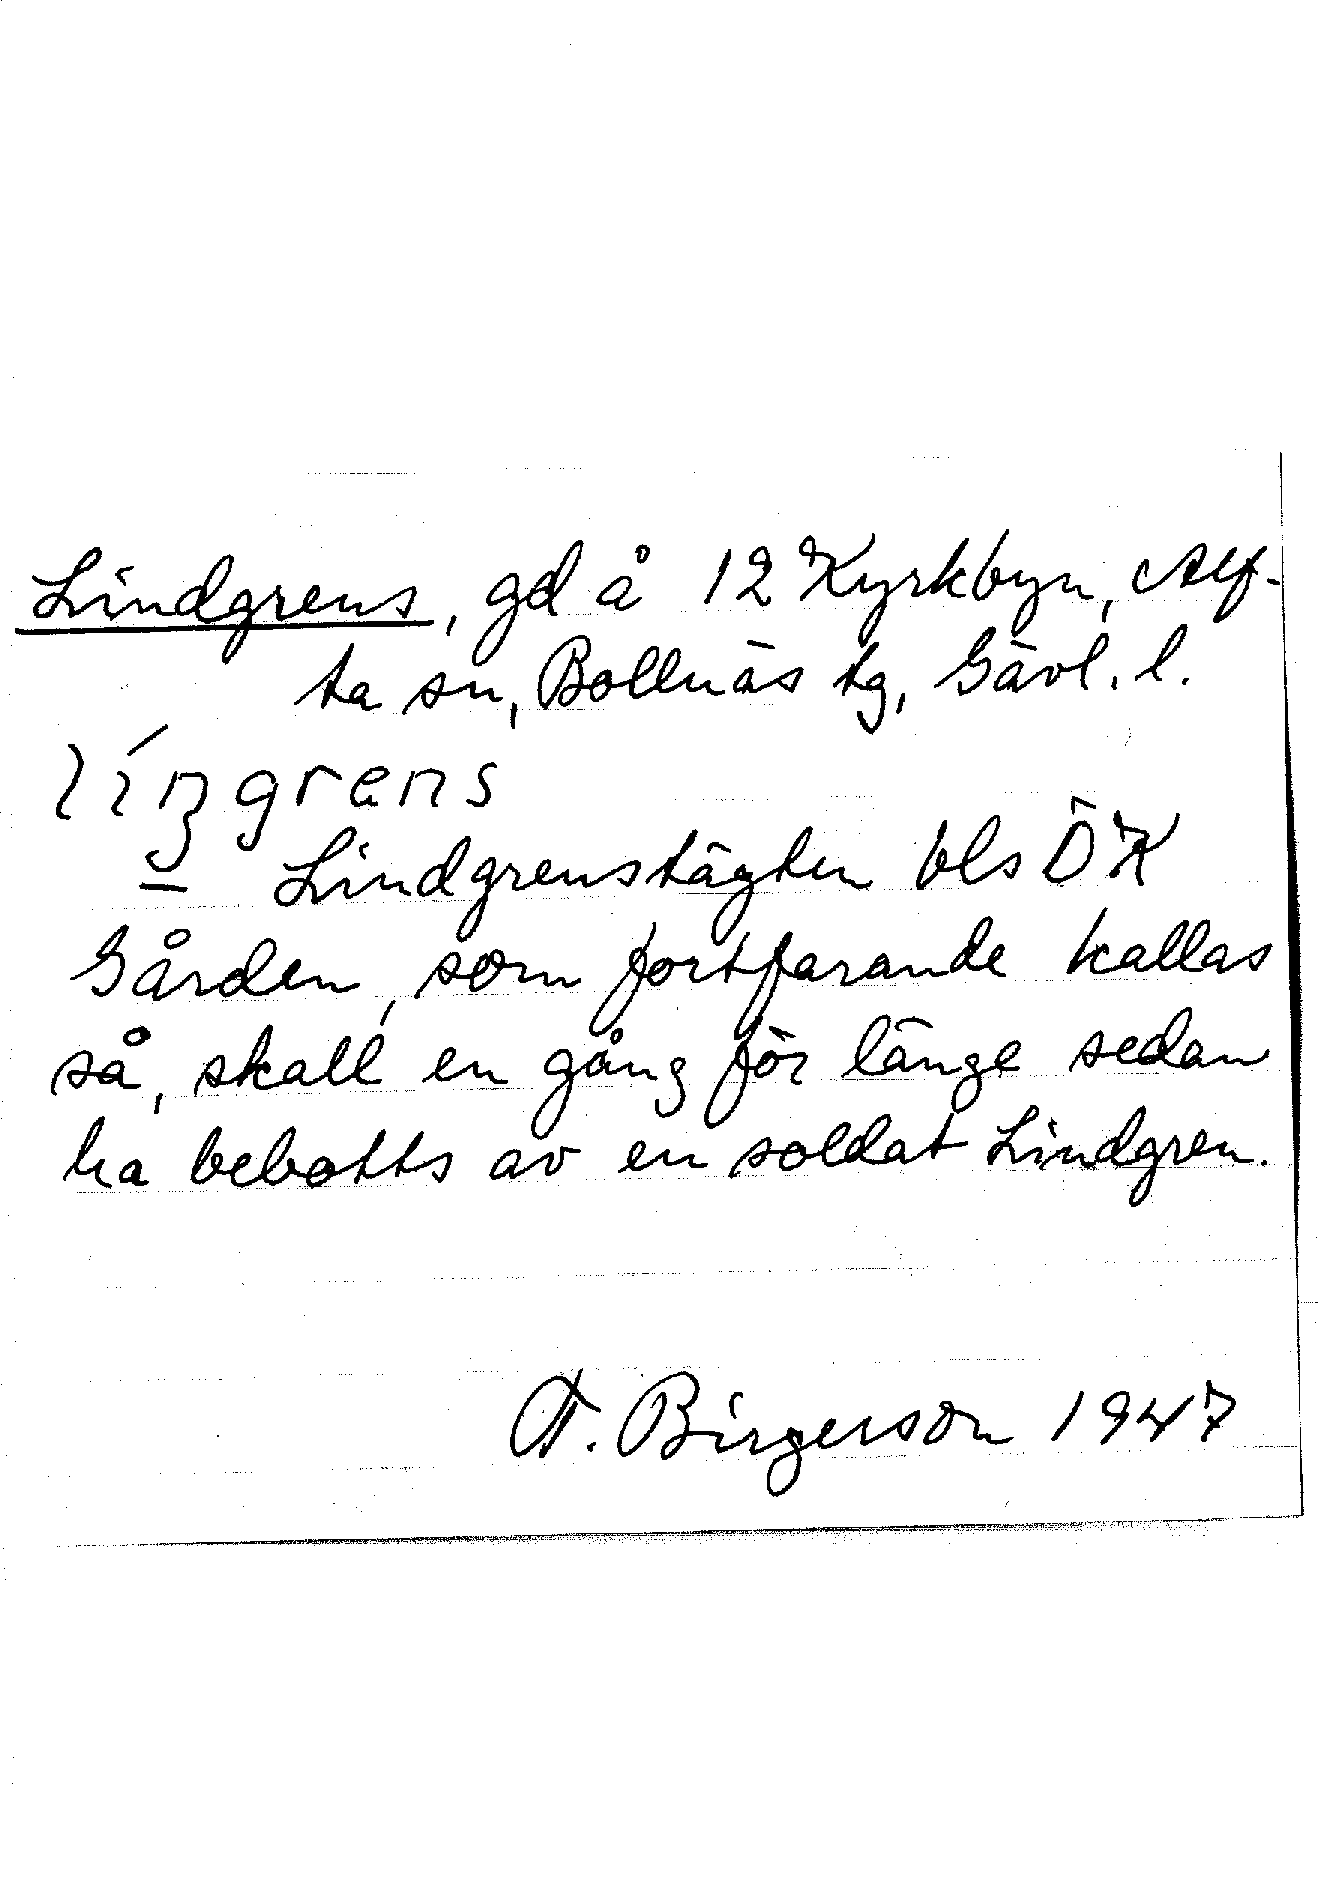 Lindgrens, gd å 12 Kyrkbyn, Alf-
ta sn, Bollnäs tg, Gävl. l.
líŋgrens
– Lindgrenstägten bls ÖK
Gården, som fortfarande kallas
så, skall en gång för länge sedan
ha bebotts av en soldat Lindgren.
F. Birgerson 1947